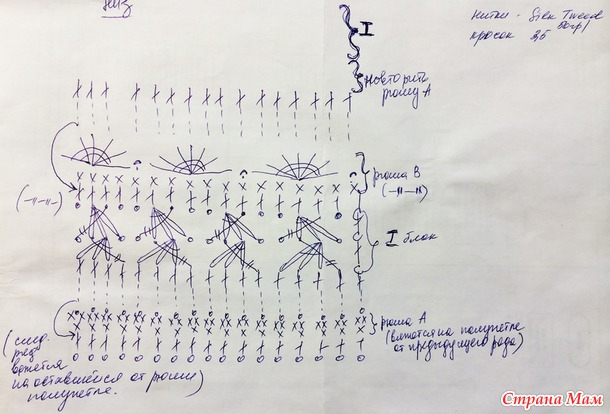 низ
нитки - Silk Tweed
50гр/
крючок 3,5
I
повторить
рюшу А
рюша В
(-"-"-)
(-"-"-)
I блок
рюша А
(вяжется на полупетле
от предыдущего ряда)
(след.
ряд
вяжется
на оставшейся от рюши)
полупетле.
Страна Мам